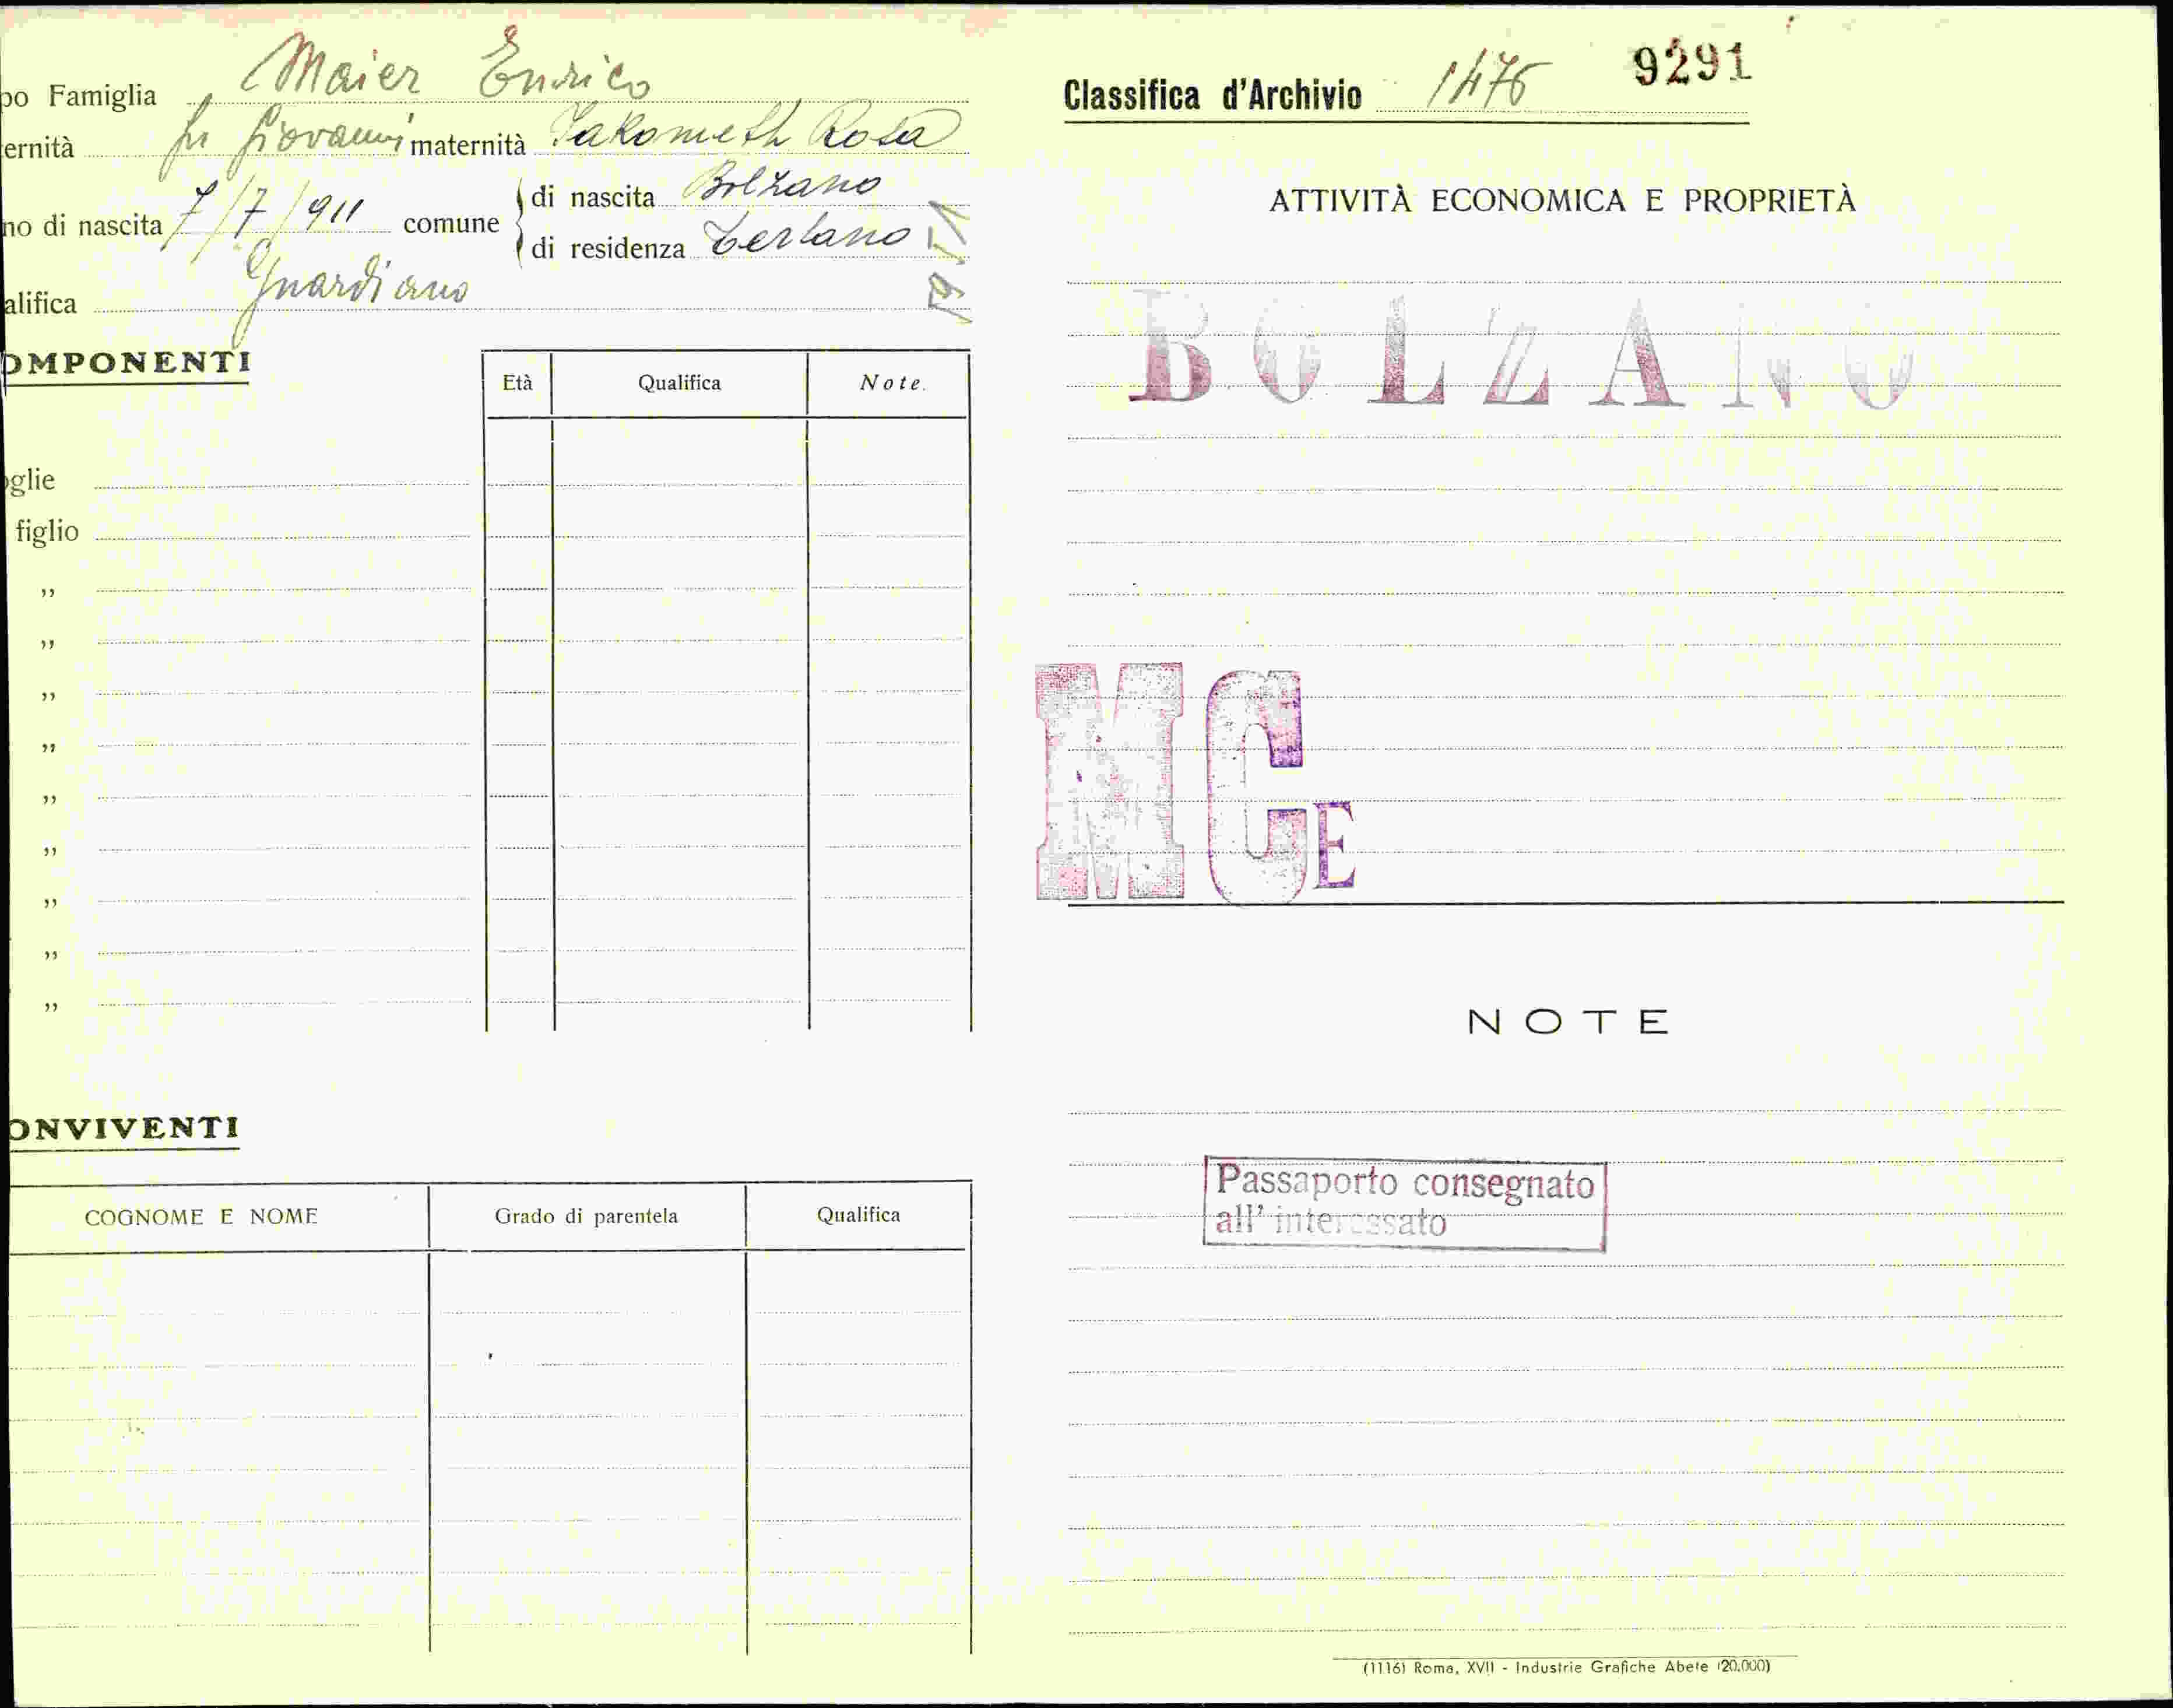 po Famiglia Maier Enrico
ernità fu Giovanni maternità Jakometh Rosa
no di nascita 7/7/911 comune di nascita Bolzano
di residenza Terlano
alifica Guardiano
OMPONENTI
Età Qualifica Note
oglie
figlio
"
"
"
"
"
"
"
"
"
ONVIVENTI
COGNOME E NOME Grado di parentela Qualifica
Classifica d'Archivio 1476 9291
ATTIVITÀ ECONOMICA E PROPRIETÀ
BOLZANO
MC
E
NOTE
Passaporto consegnato
all' interessato
(1116) Roma, XVII - Industrie Grafiche Abete (20.000)